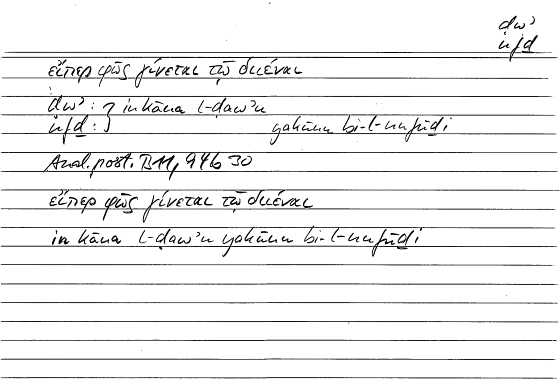 ḍwʾ
nfḏ
εἴπερ φῶς γίνεται τῷ διιέναι
ḍwʾ : } in kāna l-ḍawʾu
nfḏ : } yakūnu bi-l-nufūḏi
Anal. post. B 11, 94b 30
εἴπερ φῶς γίνεται τῷ διιέναι
in kāna l-ḍawʾu yakūnu bi-l-nufūḏi